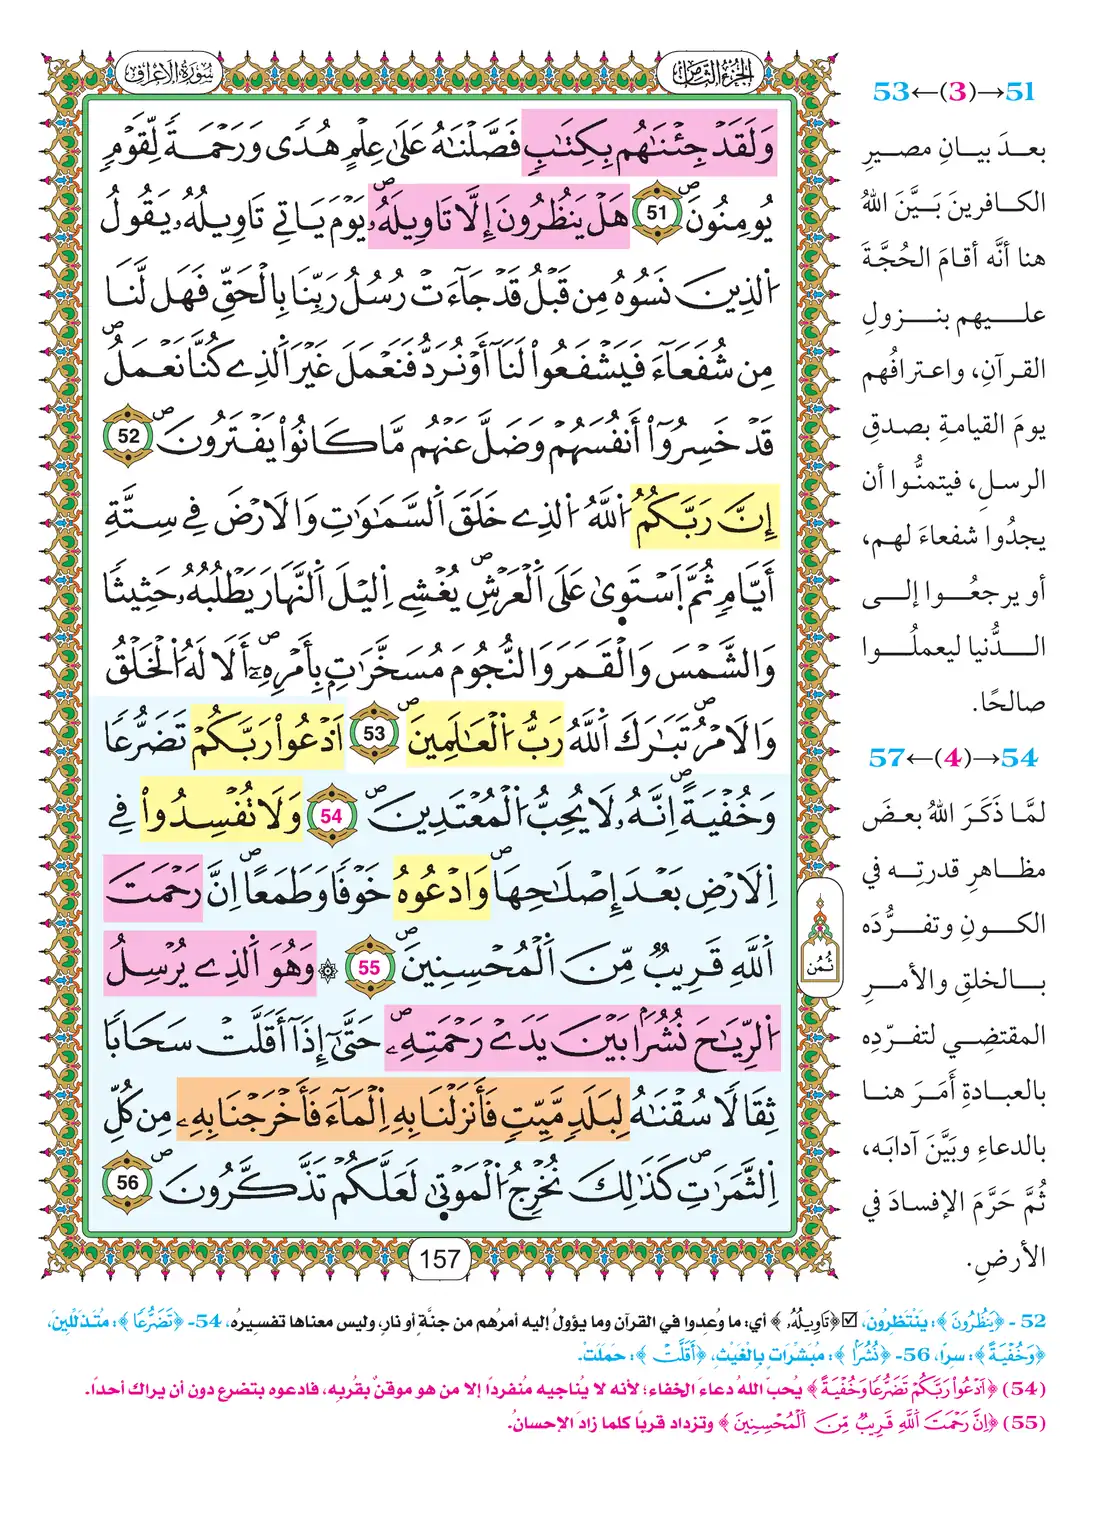 سُورَةُ الاَعْرَافِ
الجُزْءُ الثَّامِنُ
وَلَقَدْ جِئْنَٰهُم بِكِتَٰبٖ فَصَّلْنَٰهُ عَلَىٰ عِلْمٍ هُدىٗ وَرَحْمَةٗ لِّقَوْمٖ
يُومِنُونَۖ 51 هَلْ يَنظُرُونَ إِلَّا تَاوِيلَهُۥۖ يَوْمَ يَاتِے تَاوِيلُهُۥ يَقُولُ
اُ۬لذِينَ نَسُوهُ مِن قَبْلُ قَدْ جَآءَتْ رُسُلُ رَبِّنَا بِالْحَقِّ فَهَل لَّنَا
مِن شُفَعَآءَ فَيَشْفَعُواْ لَنَآ أَوْ نُرَدُّ فَنَعْمَلَ غَيْرَ اَ۬لذِے كُنَّا نَعْمَلُۖ
قَدْ خَسِرُوٓاْ أَنفُسَهُمْ وَضَلَّ عَنْهُم مَّا كَانُواْ يَفْتَرُونَۖ 52
إِنَّ رَبَّكُمُ اُ۬للَّهُ اُ۬لذِے خَلَقَ اَ۬لسَّمَٰوَٰتِ وَالَارْضَ فِے سِتَّةِ
أَيَّامٖ ثُمَّ اَ۪سْتَوَىٰ عَلَى اَ۬لْعَرْشِۖ يُغْشِے اِ۬ليْلَ اَ۬لنَّهَارَ يَطْلُبُهُۥ حَثِيثاٗ
وَالشَّمْسَ وَالْقَمَرَ وَالنُّجُومَ مُسَخَّرَٰتِۢ بِأَمْرِهِۦٓۖ أَلَا لَهُ اُ۬لْخَلْقُ
وَالَامْرُۖ تَبَٰرَكَ اَ۬للَّهُ رَبُّ اُ۬لْعَٰلَمِينَۖ 53 اَ۟دْعُواْ رَبَّكُمْ تَضَرُّعاٗ
وَخُفْيَةًۖ اِنَّهُۥ لَا يُحِبُّ اُ۬لْمُعْتَدِينَۖ 54 وَلَا تُفْسِدُواْ فِے
اِ۬لَارْضِ بَعْدَ إِصْلَٰحِهَاۖ وَادْعُوهُ خَوْفاٗ وَطَمَعاًۖ اِنَّ رَحْمَتَ
اَ۬للَّهِ قَرِيبٞ مِّنَ اَ۬لْمُحْسِنِينَۖ 55 ۞ وَهُوَ اَ۬لذِے يُرْسِلُ
اُ۬لرِّيَٰحَ نُشُراَۢ بَيْنَ يَدَےْ رَحْمَتِهِۦۖ حَتَّىٰٓ إِذَآ أَقَلَّتْ سَحَاباٗ
ثِقَالاٗ سُقْنَٰهُ لِبَلَدٖ مَّيِّتٖ فَأَنزَلْنَا بِهِ اِ۬لْمَآءَ فَأَخْرَجْنَا بِهِۦ مِن كُلِّ
اِ۬لثَّمَرَٰتِۖ كَذَٰلِكَ نُخْرِجُ اُ۬لْمَوْتَىٰ لَعَلَّكُمْ تَذَّكَّرُونَۖ 56
ثُمُن
157
53←(3)→51
بعدَ بيانِ مصيرِ
الكافرينَ بَيَّنَ اللهُ
هنا أنَّه أقامَ الحُجَّةَ
عليهم بنزولِ
القرآنِ، واعترافُهم
يومَ القيامةِ بصدقِ
الرسلِ، فيتمنُّوا أن
يجدُوا شفعاءَ لهم،
أو يرجعُوا إلى
الدُّنيا ليعملُوا
صالحًا.
57←(4)→54
لمَّا ذَكَرَ اللهُ بعضَ
مظاهرِ قدرتِه في
الكونِ وتفرُّدَه
بالخلقِ والأمرِ
المقتضِي لتفرّدِه
بالعبادةِ أَمَرَ هنا
بالدعاءِ وبَيَّنَ آدابَه،
ثُمَّ حَرَّمَ الإفسادَ في
الأرضِ.
52 - ﴿يَنظُرُونَ﴾: يَنْتَظِرُونَ، ☑ ﴿تَاوِيلَهُۥ﴾ أي: ما وُعِدوا في القرآن وما يؤولُ إليه أمرُهم من جنَّةٍ أو نارٍ، وليس معناها تفسيرُه، 54- ﴿تَضَرُّعاٗ﴾: مُتَذَلِّلِينَ،
﴿وَخُفْيَةً﴾: سرًا، 56- ﴿نُشُراَۢ﴾: مُبَشِّرَاتٍ بِالْغَيْثِ، ﴿أَقَلَّتْ﴾: حَمَلَتْ.
(54) ﴿اَ۟دْعُواْ رَبَّكُمْ تَضَرُّعاٗ وَخُفْيَةً﴾ يُحب اللهُ دعاءَ الخفاء؛ لأنه لا يُناجيه مُنفردًا إلا من هو موقنٌ بقُربِه، فادعوه بتضرعٍ دون أن يراك أحدا.
(55) ﴿اِنَّ رَحْمَتَ اَ۬للَّهِ قَرِيبٞ مِّنَ اَ۬لْمُحْسِنِينَ﴾ وتزداد قربًا كلما زادَ الإحسانُ.